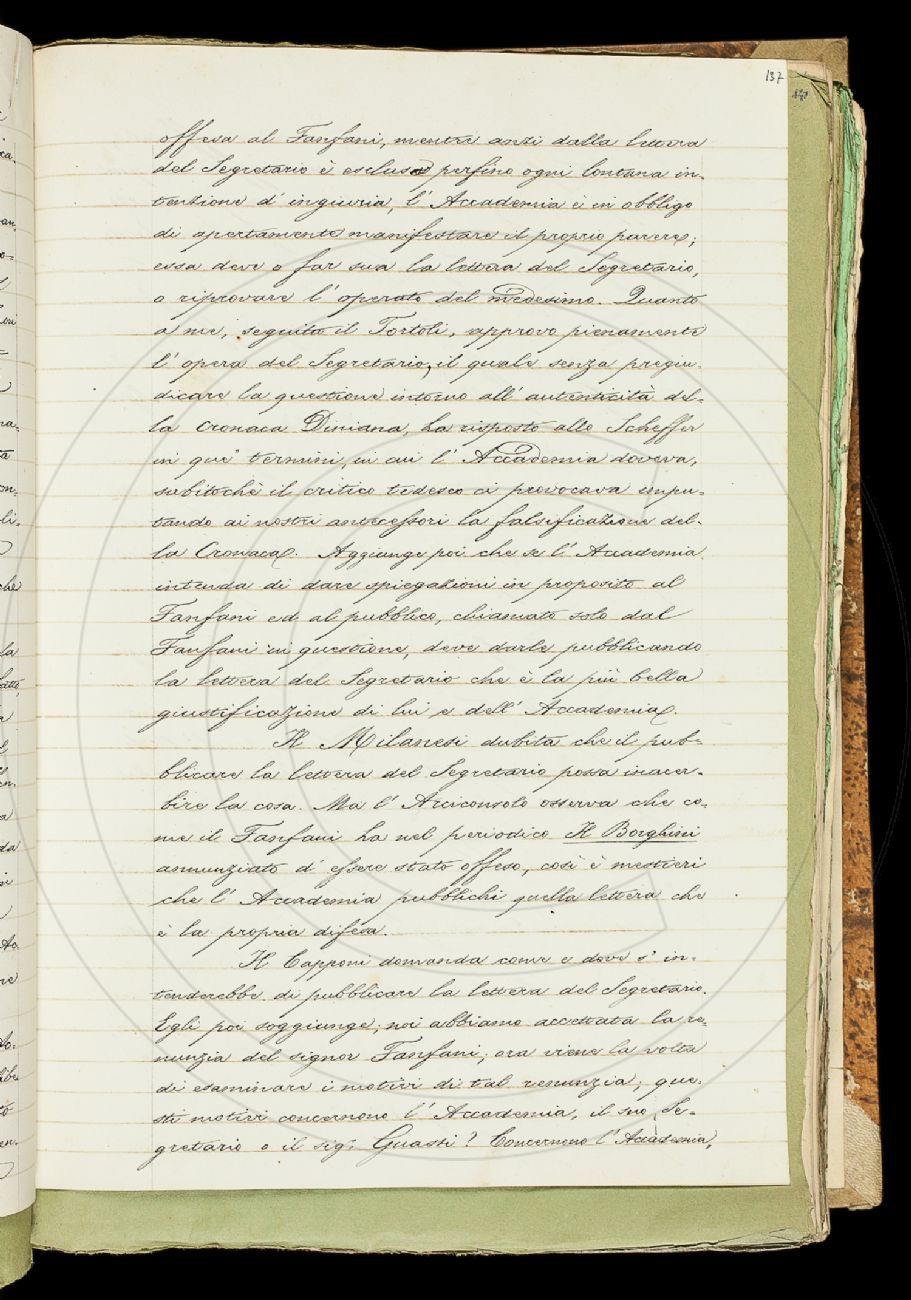 137
offesa al Fanfani, mentre anzi dalla lettera
del Segretario è esclusa perfino ogni lontana in-
tenzione d'ingiuria, l'Accademia è in obbligo
di apertamente manifestare il proprio parere;
essa deve o far sua la lettera del Segretario,
o riprovare l'operato del medesimo. Quanto
a me, seguita il Tortoli, approvo pienamente
l'opera del Segretario, il quale senza pregiu-
dicare la questione intorno all'autenticità del-
la Cronaca Diniana, ha risposto allo Scheffer
in que' termini, in cui l'Accademia doveva,
subitochè il critico tedesco ci provocava impu-
tando ai nostri antecessori la falsificazione del-
la Cronaca. Aggiunge poi che se l'Accademia
intenda di dare spiegazioni in proposito al
Fanfani ed al pubblico, chiamato solo dal
Fanfani in questione, deve darle pubblicando
la lettera del Segretario che è la più bella
giustificazione di lui e dell'Accademia.
Il Milanesi dubita che il pub-
blicare la lettera del Segretario possa inacer-
bire la cosa. Ma l'Arciconsolo osserva che co-
me il Fanfani ha nel periodico Il Borghini
annunziato d'essere stato offeso, così è mestieri
che l'Accademia pubblichi quella lettera che
è la propria difesa.
Il Capponi domanda come e dove s'in-
tenderebbe di pubblicare la lettera del Segretario.
Egli poi soggiunge; noi abbiamo accettata la re-
nunzia del signor Fanfani; ora viene la volta
di esaminare i motivi di tal renunzia; que-
sti motivi concernono l'Accademia, il suo Se-
gretario o il sig. Guasti? Concernono l'Accademia,